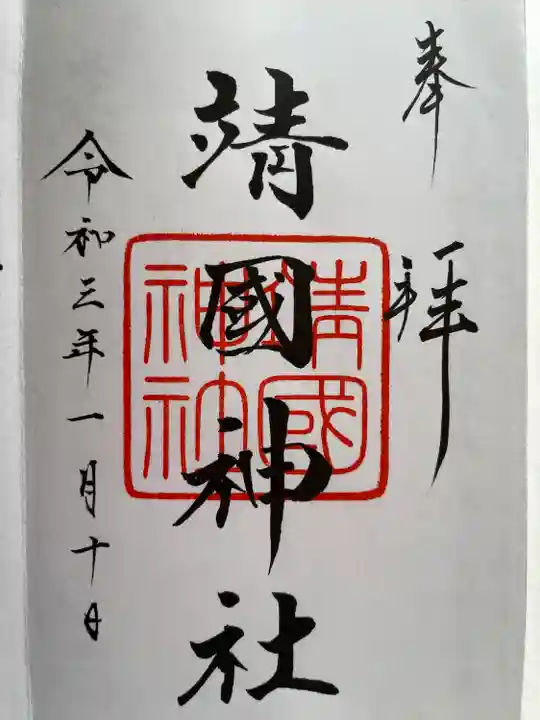 奉拝
靖國神社
靖國神社
令和三年一月十日